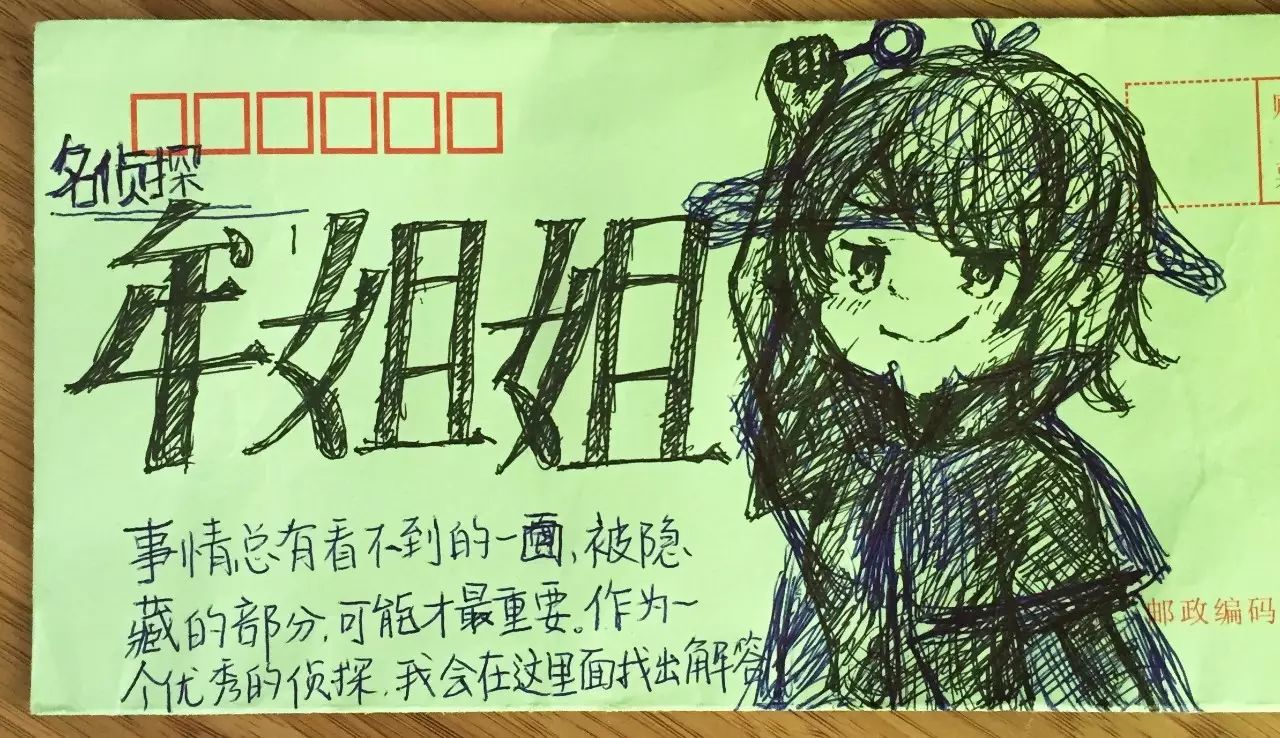 名侦探
年姐姐
事情总有看不到的一面,被隐
藏的部分,可能才最重要。作为一
个优秀的侦探,我会在这里面找出解答
邮政编码